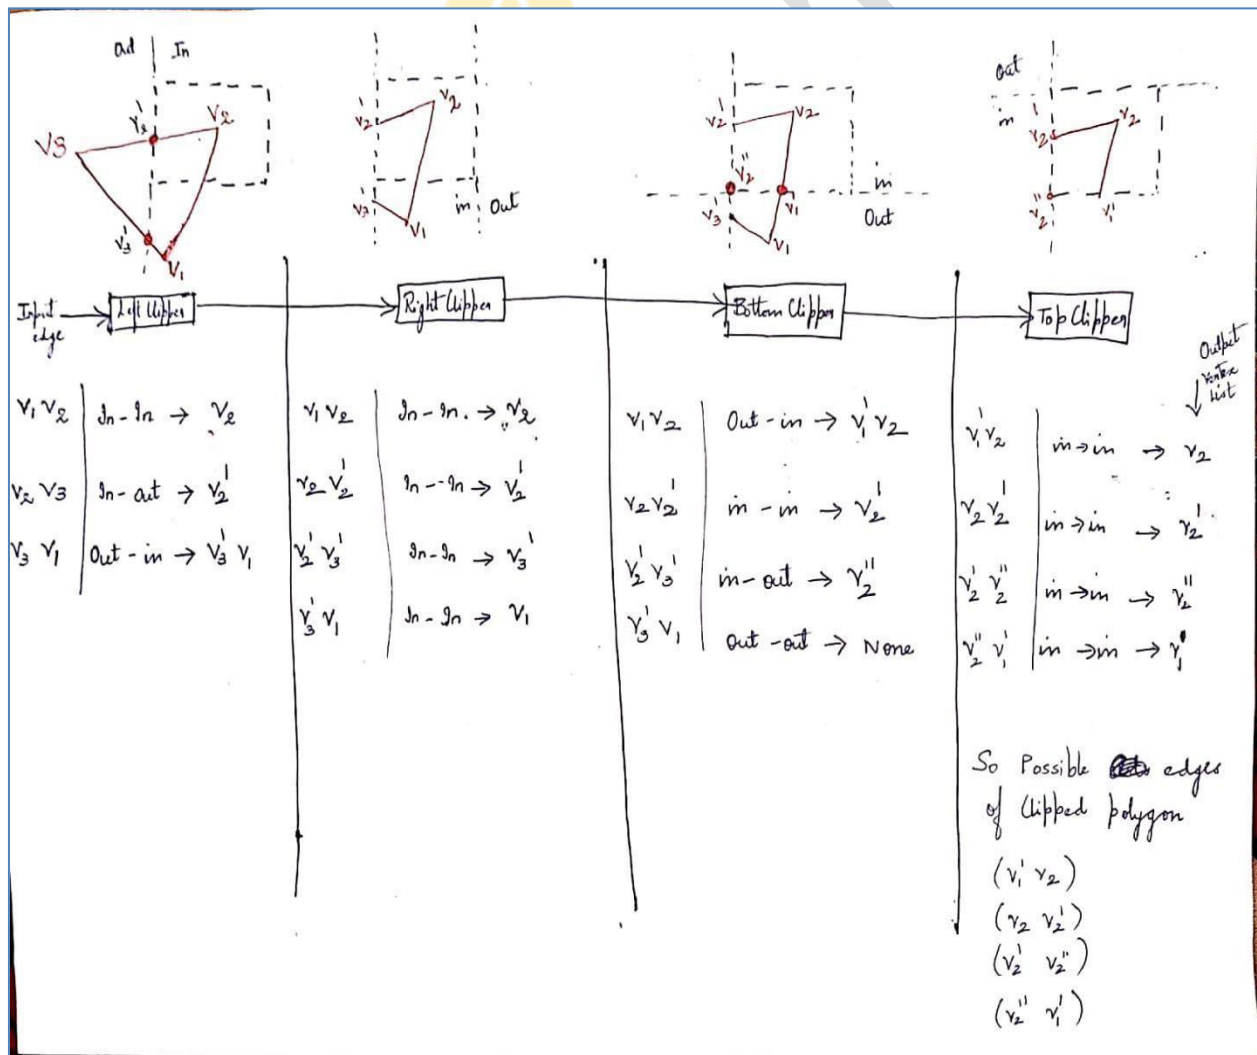 Out | In
V2' V2
V3
V3'
V1
V2' V2
V3' in Out
V1
V2' V2
V2'' in
V3' V1' Out
V1
Out
in
V2' V2
V2'' V1''
Input edge → Left Clipper → Right Clipper → Bottom Clipper → Top Clipper
Output
Vertex
List
V1 V2 | In-In → V2
V2 V3 | In-out → V2'
V3 V1 | Out-in → V3' V1
V1 V2 | In-In. → V2
V2 V2' | In--In → V2'
V2' V3' | In-In → V3'
V3' V1 | In-In → V1
V1 V2 | Out-in → V1' V2
V2 V2' | in-in → V2'
V2' V3' | in-out → V2''
V3' V1 | out-out → None
V1' V2 | in→in → V2
V2 V2' | in→in → V2'
V2' V2'' | in→in → V2''
V2'' V1' | in→in → V1'
So Possible edges
of Clipped polygon
(V1' V2)
(V2 V2')
(V2' V2'')
(V2'' V1')